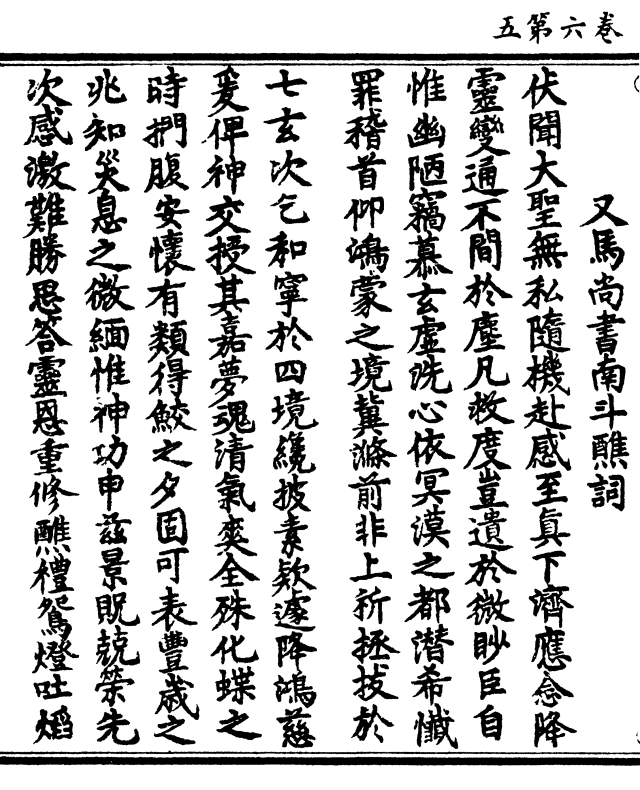 五第六卷
又馬尚書南斗醮詞
伏聞大聖無私隨機赴感至眞下濟應念降
靈變通不間於塵凡救度豈遺於微眇臣自
惟幽陋竊慕玄虛洗心依冥漠之都潜希懺
罪稽首仰鴻蒙之境冀滌前非上祈拯拔於
七玄次乞和寧於四境纔披素欵遽降鴻慈
爰俾神交授其嘉夢魂清氣爽全殊化蝶之
時捫腹安懷有類得鮫之夕固可表豐歲之
兆知災息之微緬惟神功申兹景貺兢榮先
次感激難勝思答靈恩重修醮禮鴛燈吐熖